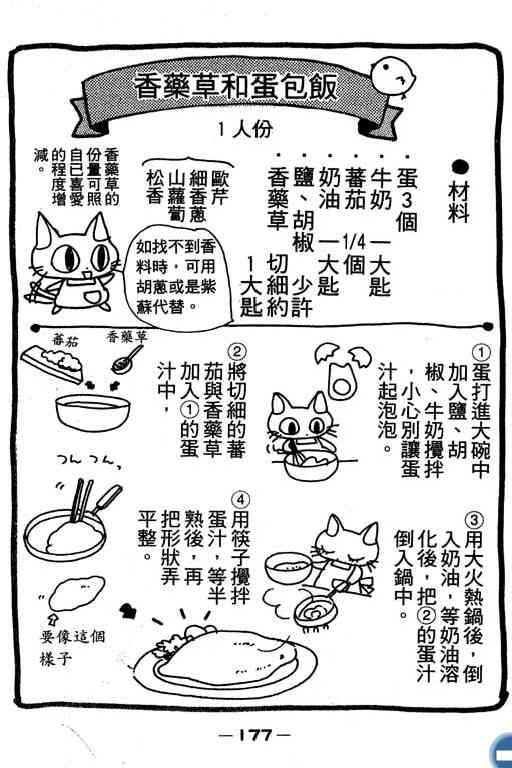 香藥草和蛋包飯
1人份
●材料
・蛋3個
・牛奶 一大匙
・蕃茄 1/4個
・奶油 一大匙
・鹽、胡椒 少許
・香藥草 切細約1大匙
歐芹
細香蔥
山蘿蔔
松香
香藥草的
份量可照
自己喜愛
的程度增
減。
如找不到香
料時，可用
胡蔥或是紫
蘇代替。
①蛋打進大碗中
加入鹽、胡
椒、牛奶攪拌
，小心別讓蛋
汁起泡泡。
蕃茄
香藥草
②將切細的蕃
茄與香藥草
加入①的蛋
汁中，
③用大火熱鍋後，倒
入奶油，等奶油溶
化後，把②的蛋汁
倒入鍋中。
④用筷子攪拌
蛋汁，等半
熟後，再
把形狀弄
平整。
つんつん。
要像這個
樣子
－177－